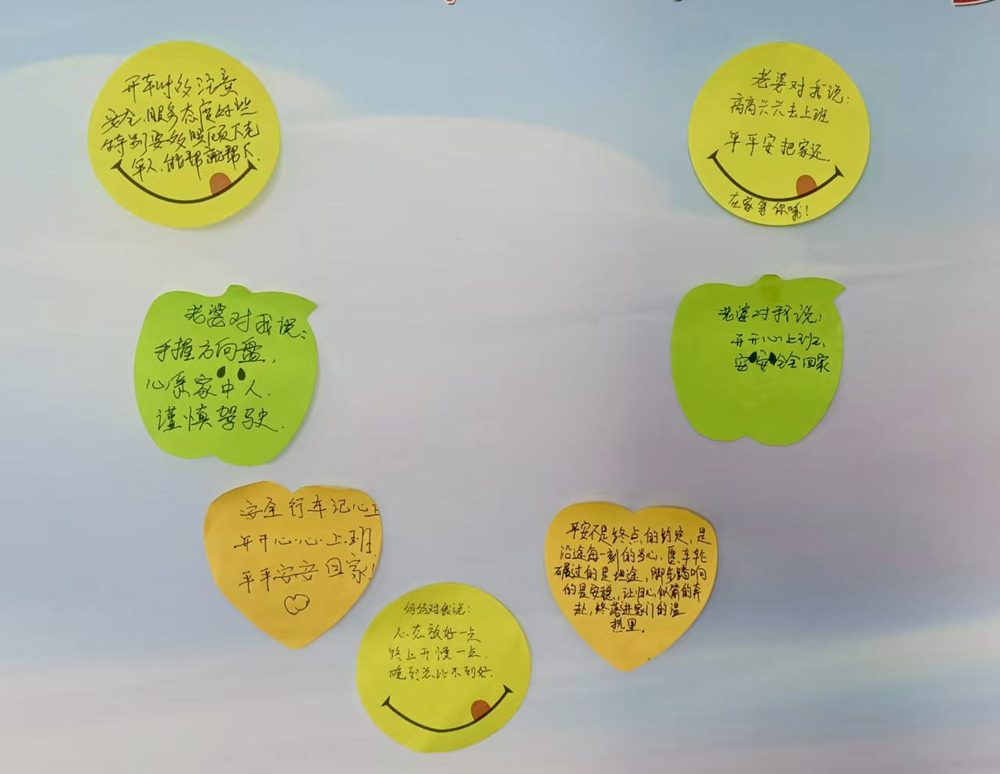 开车时多注意
安全.服务态度好些
特别要多照顾下老
年人.能帮就帮下.
老婆对我说:
高高兴兴去上班
平平安把家还
在家等你哦!
老婆对我说:
手握方向盘,
心系家中人.
谨慎驾驶.
老婆对我说:
开开心上班,
安安全全回家
安全行车记心上
开开心心上班
平平安安回家!
平安不是终点的约定,是
沿途每一刻的当心.愿车轮
碾过的是坦途,脚步踏响
的是安稳,让归心似箭的奔
赴,终落进家门的温
热里.
妈妈对我说:
心态放好一点
路上开慢一点.
晚到总比不到好.